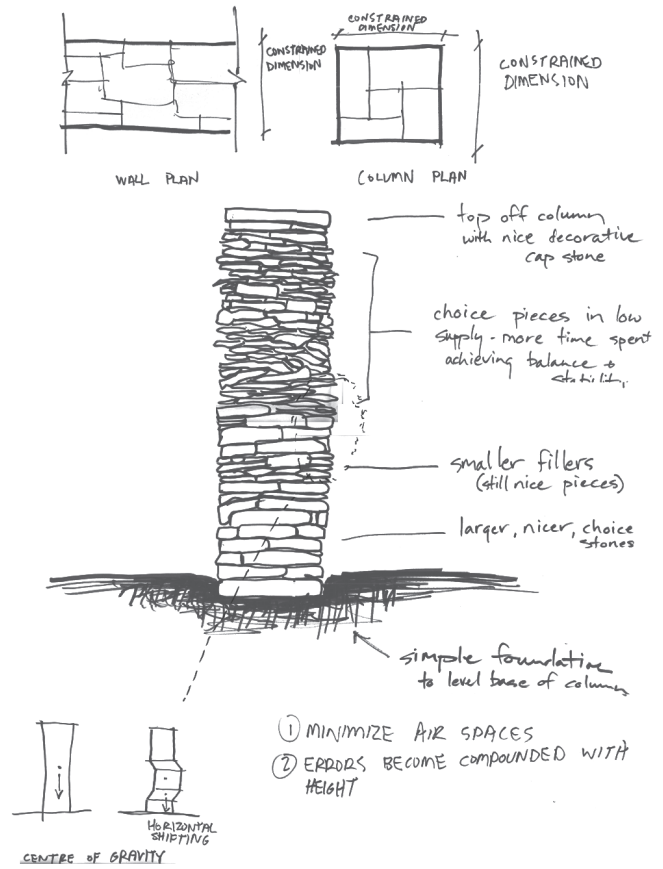 CONSTRAINED
DIMENSION
CONSTRAINED
DIMENSION
CONSTRAINED
DIMENSION
WALL PLAN
COLUMN PLAN
top off column
with nice decorative
cap stone
choice pieces in low
supply - more time spent
achieving balance &
stability
smaller fillers
(still nice pieces)
larger, nicer, choice
stones
simple foundation
to level base of column
① MINIMIZE AIR SPACES
② ERRORS BECOME COMPOUNDED WITH
HEIGHT
HORIZONTAL
SHIFTING
CENTRE OF GRAVITY